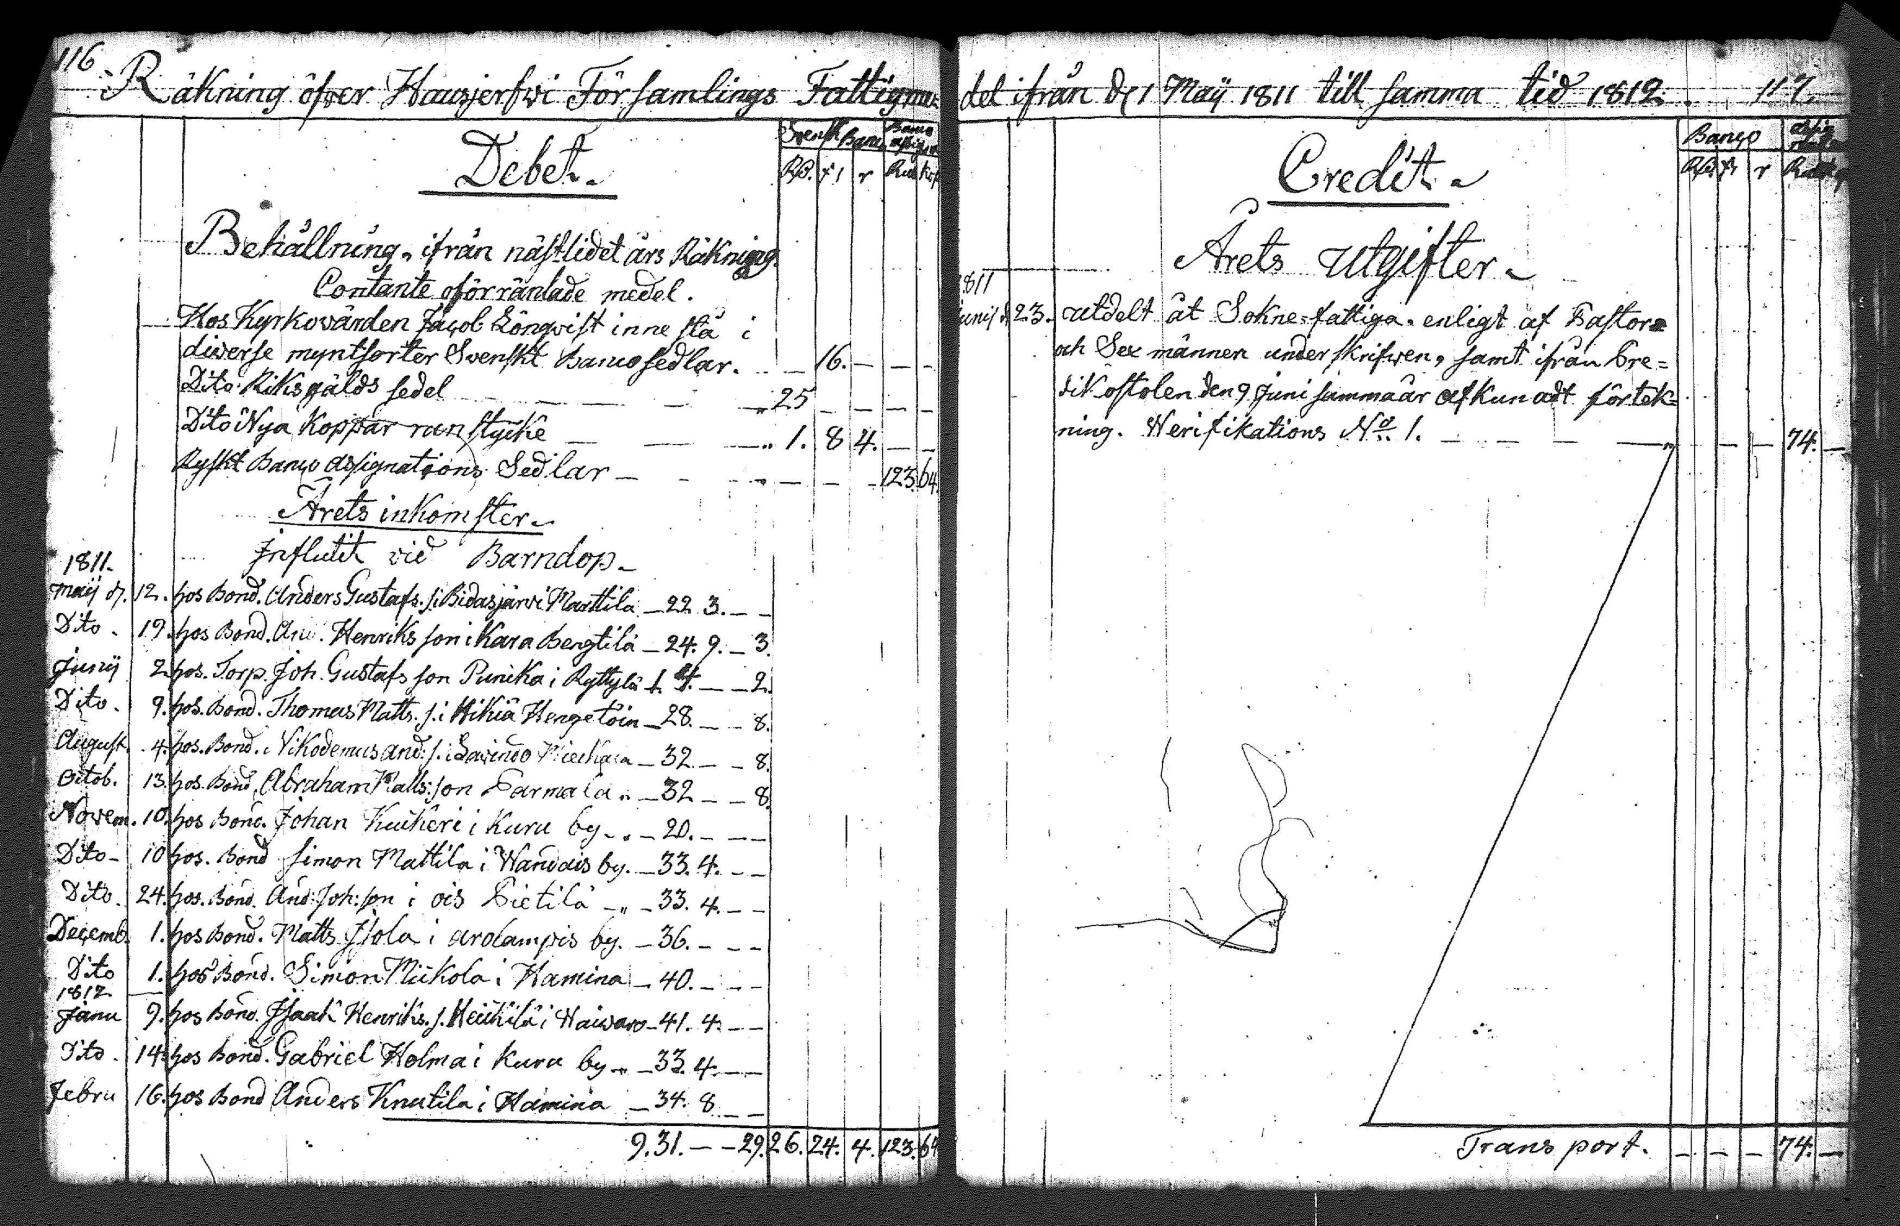 116
Räkning öfwer Hausjerfwi Församlings Fattigme=
Debet.
Svenskt Banco
Banco
Rd. ſ r
Rub. Kop.
Behållning ifrån nästlidet års Räkning.
Contante oförräntade medel.
Hos Kyrkovärden Jacob Löngwist inne stå i
diverse myntsorter Svenskt Banco sedlar. — 16. — — —
Dito Riksgälds sedel — — — „ 25 — — — —
Dito Nya Koppar runstycke — — — „ 1. 8 4. — —
Ryskt Banco assignations Sedlar — — — — — — 123. 64.
Årets inkomster.
Influtit vid Barndop.
1811.
Maij d. 12. hos Bond. Anders Gustafs. s. i Hidasjärvi Marttila — 22. 3. — —
Dito. 19. hos Bond. And. Henriks son i Kara Bengtilä — 24. 9. — 3.
Junij 2. hos. Torp. Joh. Gustafs son Punika i Ryttylä 1. 4. — — 2.
Dito. 9. hos. Bond. Thomas Matts. s. i Hikiä Hengetöin — 28. — — 8.
August. 4. hos. Bond. Nikodemus And. s. i — 32. — — 8.
Octob. 13. hos. Bond. Abraham Matts: son Parmala „ — 32 — — 8.
Novem. 10. hos Bond. Johan Kuckeri i Kuru by. „ — 20. — — —
Dito — 10 hos. Bond Simon Mattila i Wandais by. — 33. 4. — —
Dito. 24. hos. Bond. And: Joh: son i ois Pietilä — „ — 33. 4. — —
Decemb. 1. hos Bond. Matts Isola i arolampis by. — 36. — — —
Dito 1. hos Bond. Simon Mickola i Hamina — 40. — — —
1812
Janu 9. hos Bond. Isaak Henriks. s. Heickilä i Haiwaro — 41. 4. — —
Dito. 14. hos Bond. Gabriel Holma i Kuru by „ — 33. 4. — —
Febru 16. hos Bond Anders Knutila i Hamina — 34. 8 — —
9. 31. — — 29. 26. 24. 4. 123. 64
del ifrån d. 1 Maij 1811 till samma tid 1812. 117.
Credit.
Banco
Rd. ſ r
Årets utgifter.
1811
Junij d. 23. utdelt åt Sokne=fattiga, enligt af Pastore
och Sex männen underskrifwen, samt ifrån Pre=
dikostolen den 9 Juni samma år afkunadt förtek=
ning. Werifikations No. 1. — — — — „ — — — 74. —
Transport. — — — 74. —